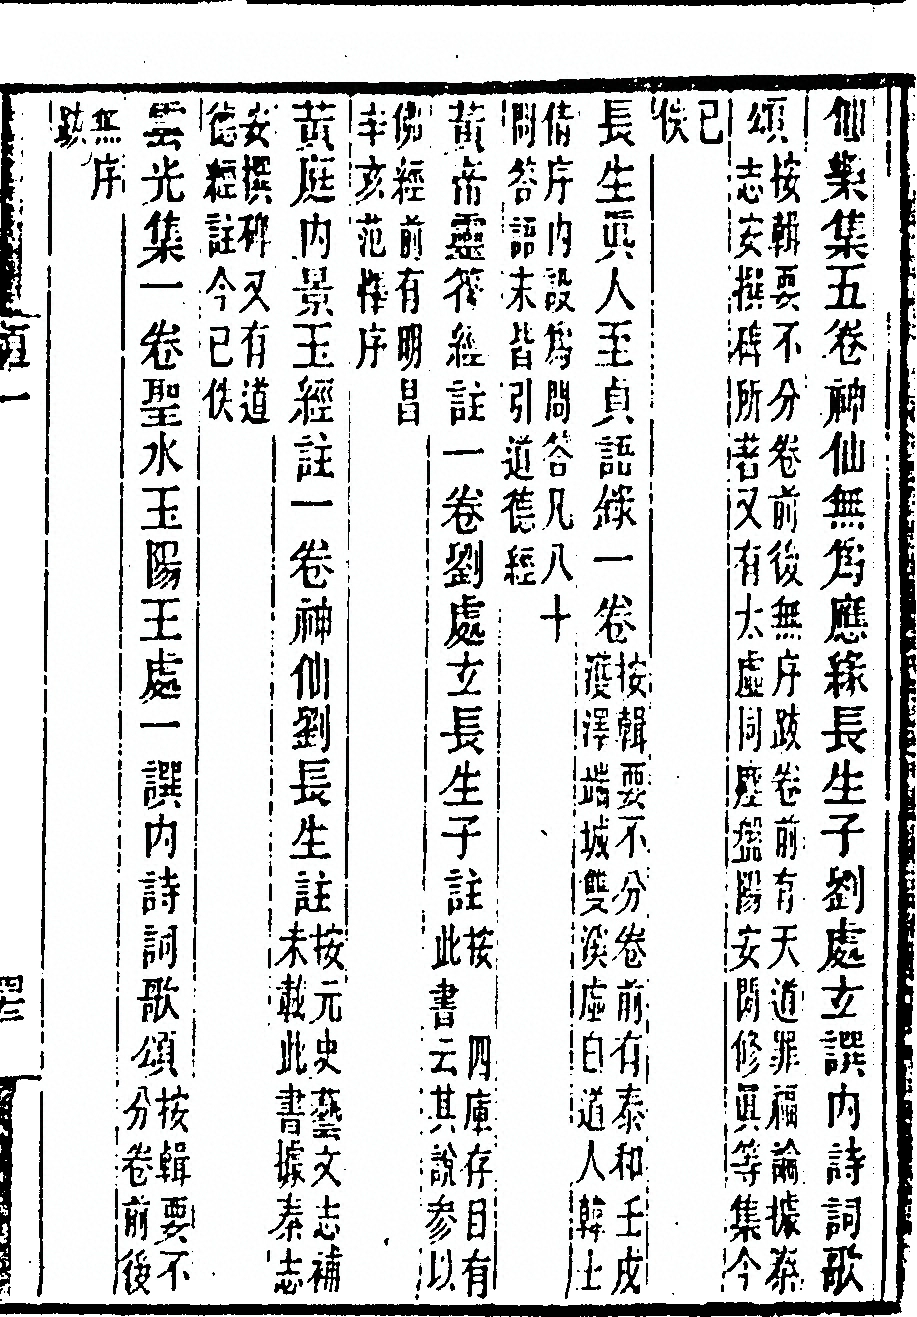 仙樂集五卷神仙無爲應緣長生子劉處玄譔内詩詞歌
頌按輯要不分卷前後無序跋卷前有天道罪福論據秦
志安撰碑所著又有太虛同塵盤陽安閒修眞等集今
已
佚
長生眞人至眞語錄一卷按輯要不分卷前有泰和壬戌
濩澤端城雙溪虛白道人韓士
倩序内設爲問答凡八十
問答語末皆引道德經
黃帝靈符經註一卷劉處玄長生子註按 四庫存目有
此書云其說參以
佛經前有明昌
辛亥范懌序
黃庭内景玉經註一卷神仙劉長生註按元史藝文志補
未載此書據秦志
安撰碑又有道
德經註今已佚
雲光集一卷聖水玉陽王處一譔内詩詞歌頌按輯要不
分卷前後
無序
跋